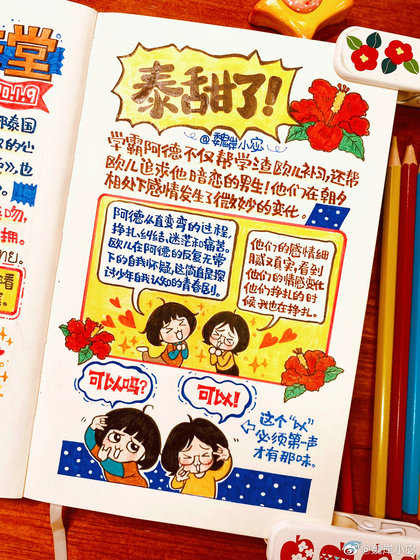 堂
0.1.9
泰国
的小
》,也
吻,
拥.
看
泰甜了!
学霸阿德不仅帮学渣欧儿补习,还帮
欧儿追求他暗恋的男生!他们在朝夕
相处下感情发生了微妙的变化.
阿德从直变弯的过程,
挣扎纠结,迷茫和痛苦.
欧儿在阿德的反复无常
下的自我怀疑,这简直是探
讨少年自我认知的青春剧.
他们的感情细
腻又真实,看到
他们的情感变化
他们挣扎的时
候我也在挣扎.
可以吗?
可以!
这个“以”
必须第一声
才有那味.